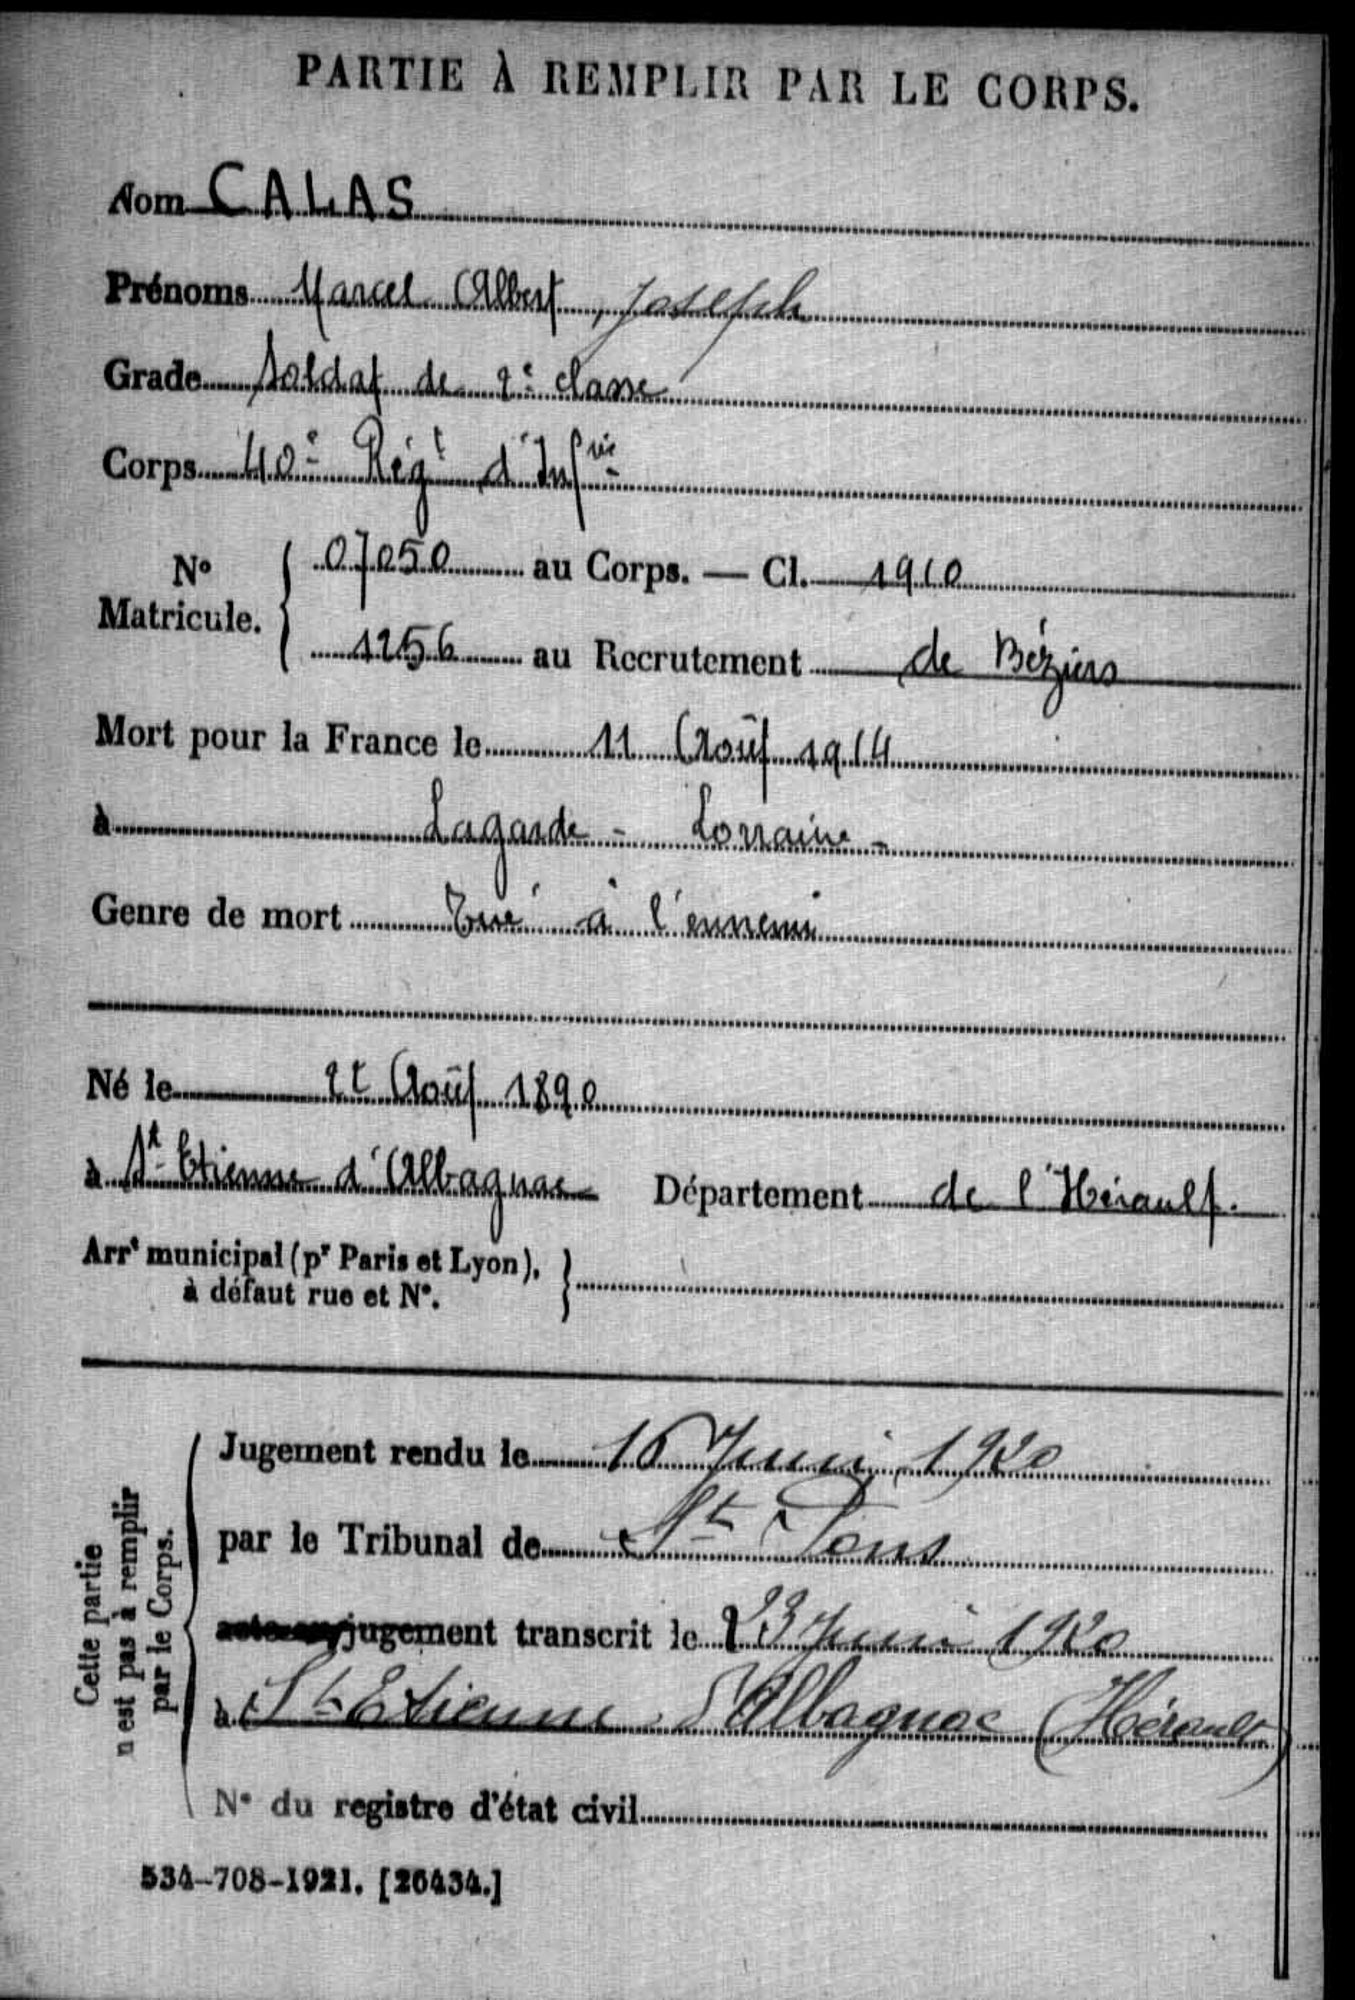 PARTIE À REMPLIR PAR LE CORPS.
Nom CALAS
Prénoms Marcel Albert, Joseph
Grade Soldat de 2e classe
Corps 40e Régt d'Infrie
No Matricule. 07050 au Corps. — Cl. 1910
1256 au Recrutement de Béziers
Mort pour la France le 11 Août 1914
à Lagarde - Lorraine -
Genre de mort Tué à l'ennemi
Né le Août 1890
à St Etienne d'Albagnac Département de l'Hérault.
Arrt municipal (pr Paris et Lyon),
à défaut rue et No.
Cette partie
n'est pas à remplir
par le Corps.
Jugement rendu le 16 Juin 1920
par le Tribunal de St Pons
acte ou jugement transcrit le 23 Juin 1920
à St Etienne d'Albagnac (Hérault)
No du registre d'état civil
534-708-1921. [26434.]